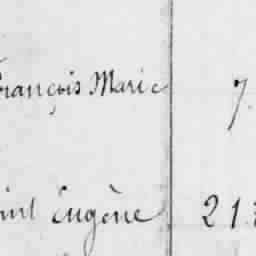 François Marie 7.
Eugène 21.